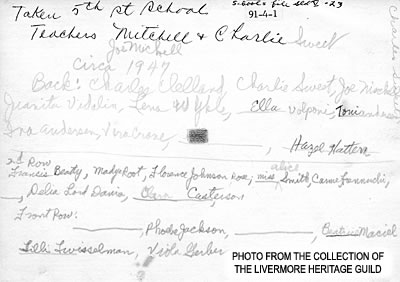 Taken 5th st School
91-4-1
Teachers Mitchell & Charlie Sweet
Joe Michell
Circa 1947
Back: Charles Clelland, Charlie Sweet, Joe
Juanita Vedelin, Lena Ella Volponi, Toni
Iva Andersen, Vera Crane, Hazel Hatten
2nd Row
alice
Francis Beaty, Madge Root, Florence Johnson Rose, miss Smith, Carme
, Delia Lord Davis, Clara Casterson
Front Row:
Phoebe Jackson, Beatrice Maciel
Lilli Twisselman, Viola Gerber
PHOTO FROM THE COLLECTION OF
THE LIVERMORE HERITAGE GUILD